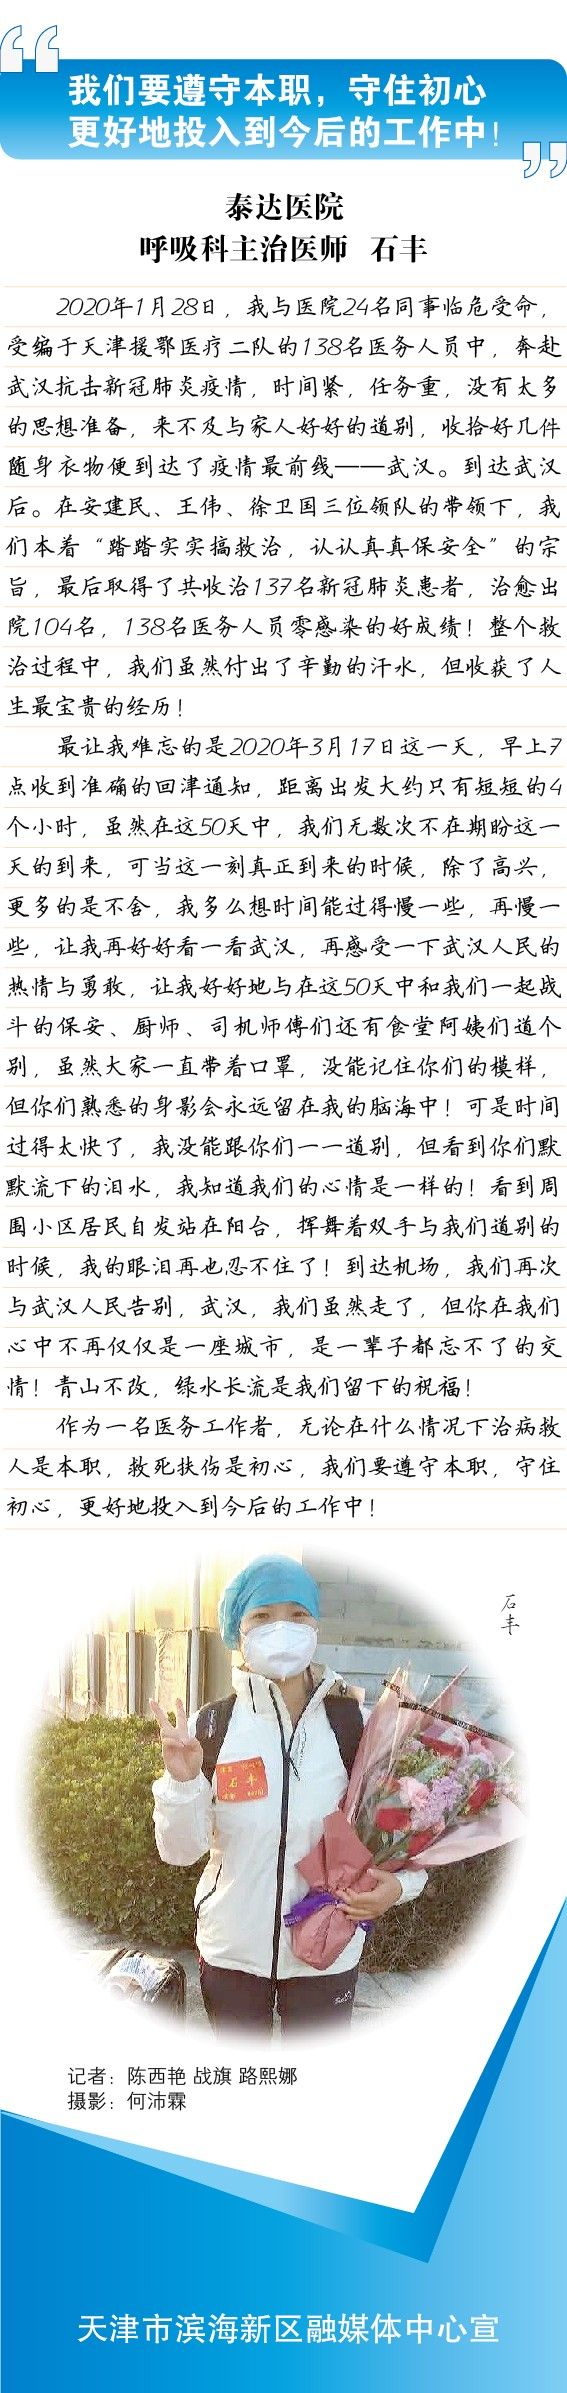 我们要遵守本职，守住初心
更好地投入到今后的工作中！
泰达医院
呼吸科主治医师 石丰
2020年1月28日，我与医院24名同事临危受命，
受编于天津援鄂医疗二队的138名医务人员中，奔赴
武汉抗击新冠肺炎疫情，时间紧，任务重，没有太多
的思想准备，来不及与家人好好的道别，收拾好几件
随身衣物便到达了疫情最前线——武汉。到达武汉
后。在安建民、王伟、徐卫国三位领队的带领下，我
们本着“踏踏实实搞救治，认认真真保安全”的宗
旨，最后取得了共收治137名新冠肺炎患者，治愈出
院104名，138名医务人员零感染的好成绩！整个救
治过程中，我们虽然付出了辛勤的汗水，但收获了人
生最宝贵的经历！
最让我难忘的是2020年3月17日这一天，早上7
点收到准确的回津通知，距离出发大约只有短短的4
个小时，虽然在这50天中，我们无数次不在期盼这一
天的到来，可当这一刻真正到来的时候，除了高兴，
更多的是不舍，我多么想时间能过得慢一些，再慢一
些，让我再好好看一看武汉，再感受一下武汉人民的
热情与勇敢，让我好好地与在这50天中和我们一起战
斗的保安、厨师、司机师傅们还有食堂阿姨们道个
别，虽然大家一直带着口罩，没能记住你们的模样，
但你们熟悉的身影会永远留在我的脑海中！可是时间
过得太快了，我没能跟你们一一道别，但看到你们默
默流下的泪水，我知道我们的心情是一样的！看到周
围小区居民自发站在阳台，挥舞着双手与我们道别的
时候，我的眼泪再也忍不住了！到达机场，我们再次
与武汉人民告别，武汉，我们虽然走了，但你在我们
心中不再仅仅是一座城市，是一辈子都忘不了的交
情！青山不改，绿水长流是我们留下的祝福！
作为一名医务工作者，无论在什么情况下治病救
人是本职，救死扶伤是初心，我们要遵守本职，守住
初心，更好地投入到今后的工作中！
石丰
石丰
记者：陈西艳 战旗 路熙娜
摄影：何沛霖
天津市滨海新区融媒体中心宣